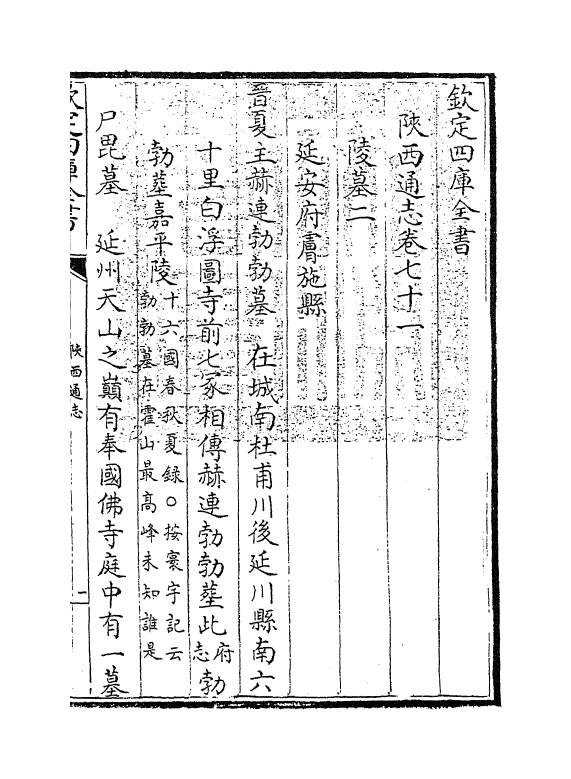 欽定四庫全書
陝西通志卷七十一
陵墓二
延安府膚施縣
晉夏主赫連勃勃墓 在城南杜甫川後延川縣南六
十里白浮圖寺前七冢相傳赫連勃勃塟此府志勃
勃塟嘉平陵十六國春秋夏録○按寰宇記云勃勃墓在霍山最高峰未知誰是
尸毘墓 延州天山之巔有奉國佛寺庭中有一墓
欽定四庫全書
陝西通志
一